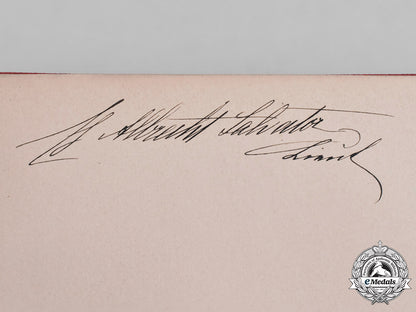 Albrecht Salvator
Lieut
eMedals